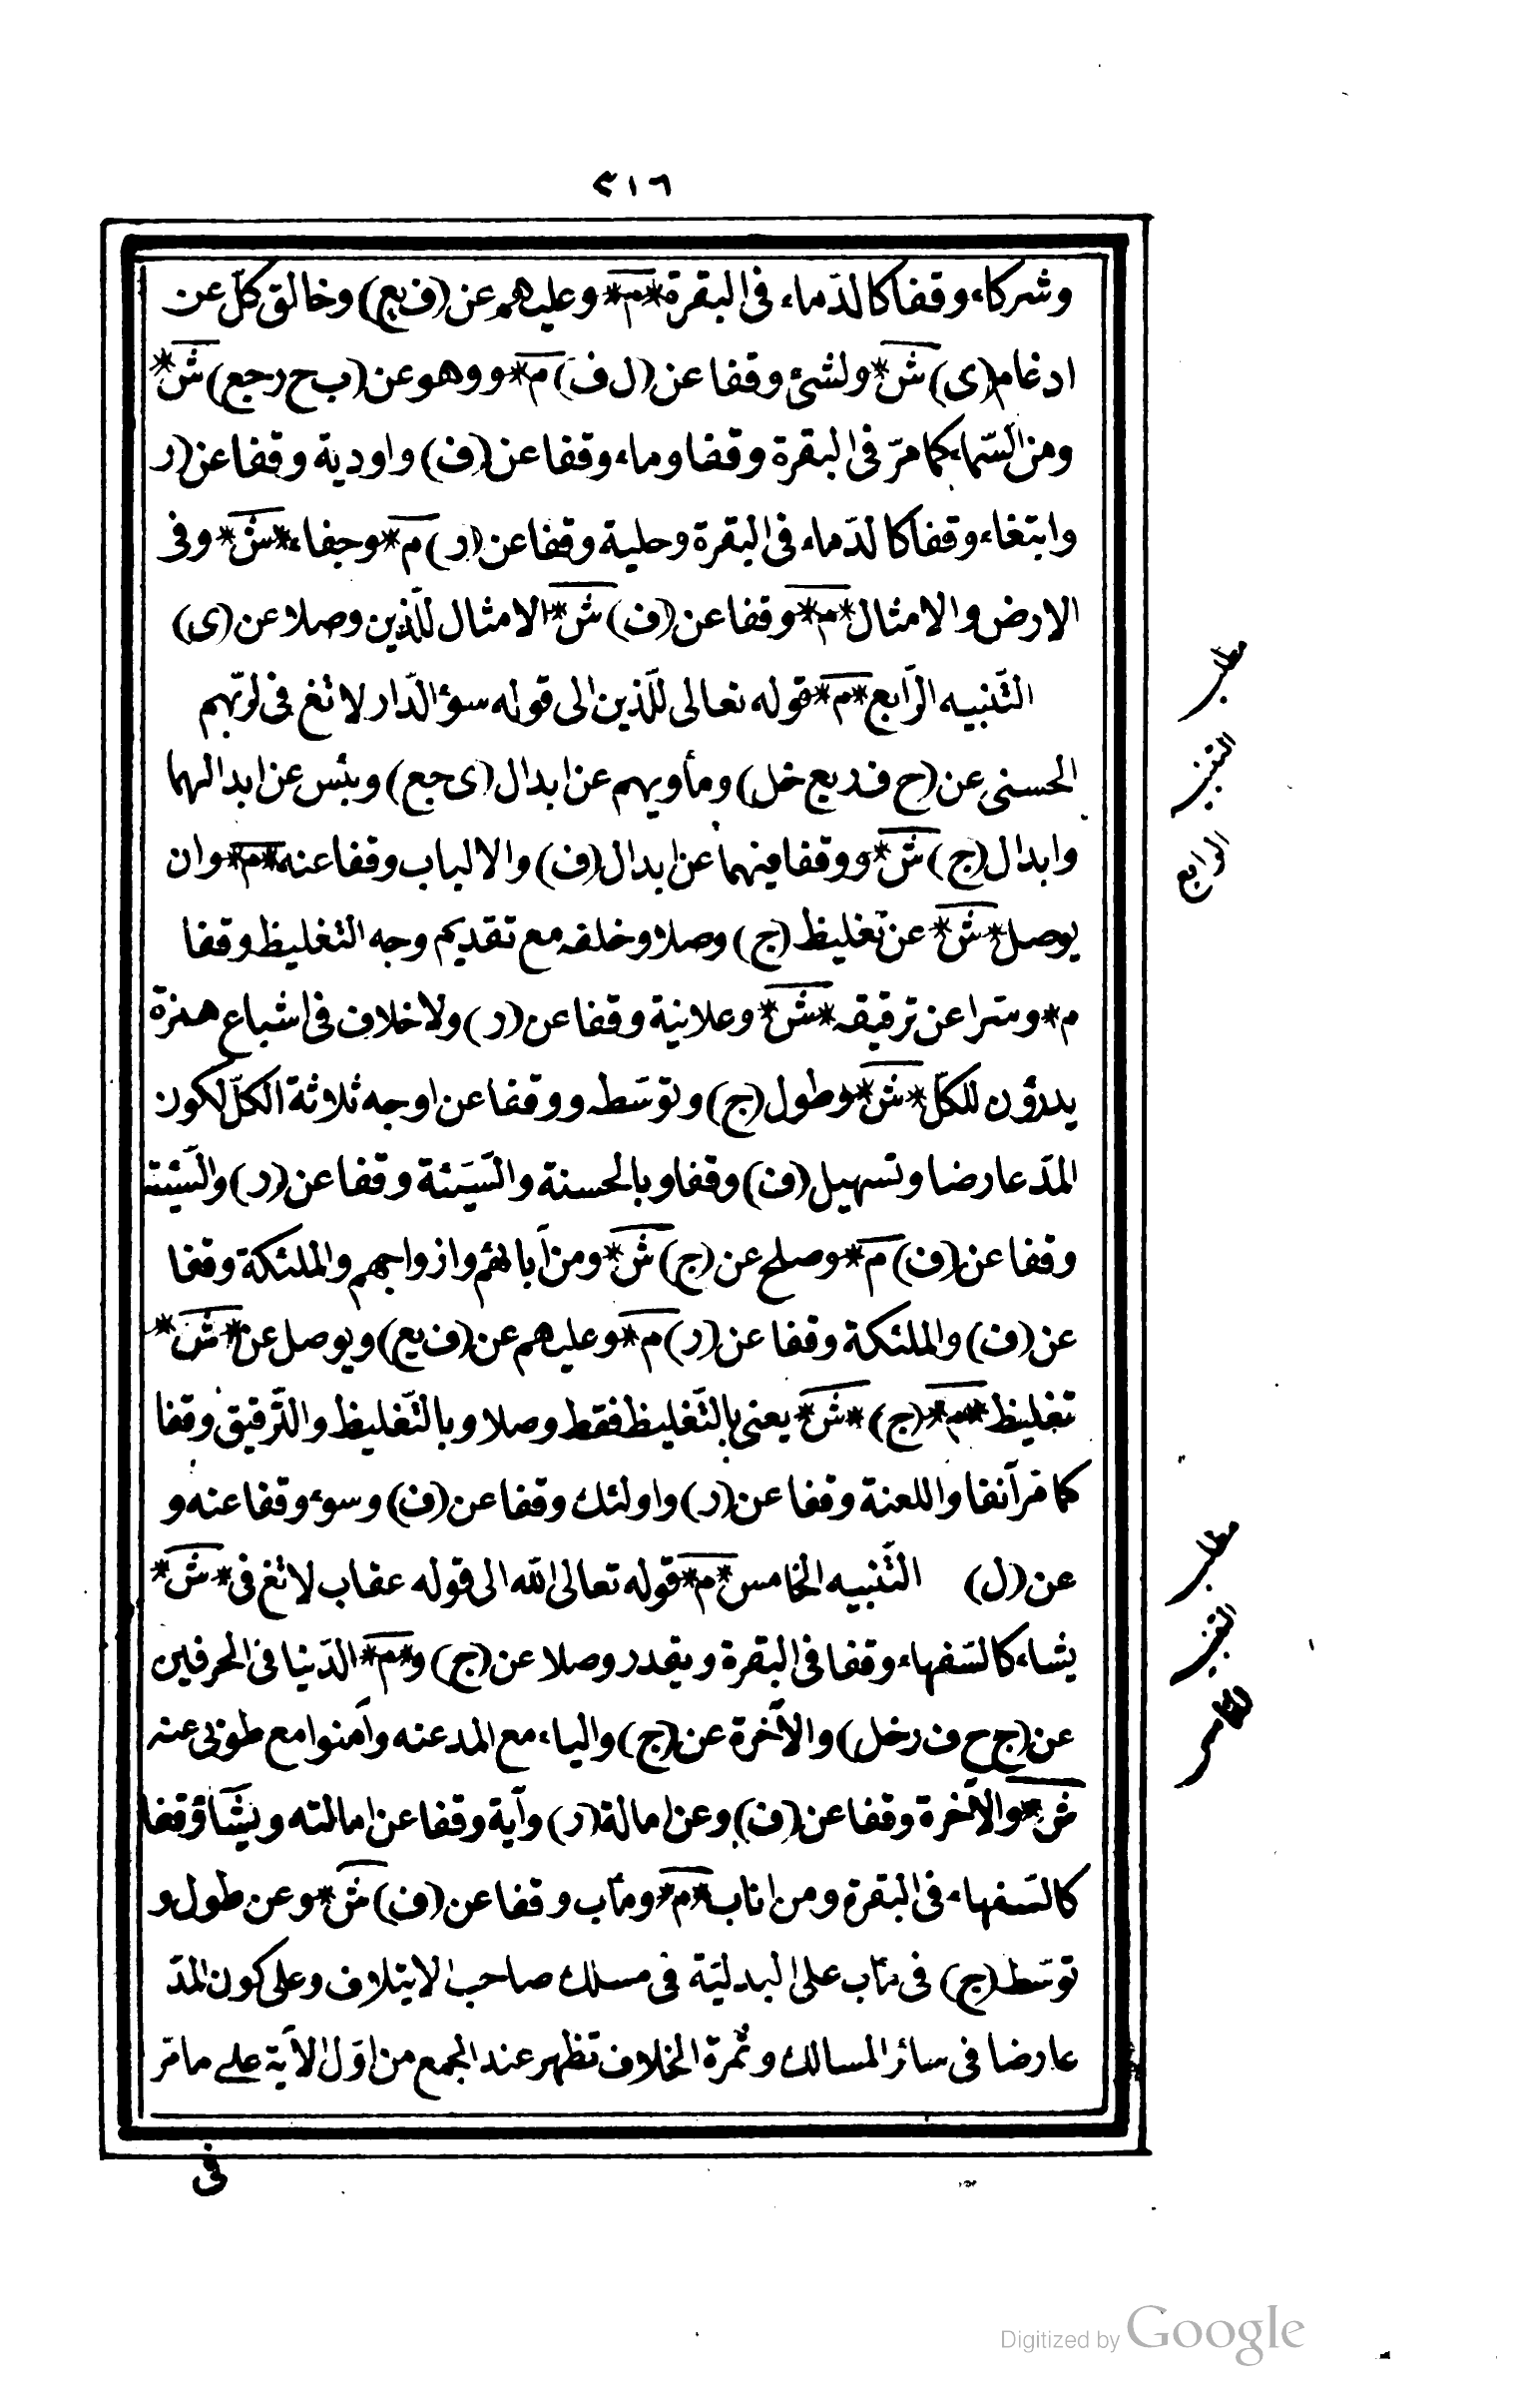 ٣١٦
وشركاء وقفا كالدّماء فى البقرة *م* وعليهم عن (ف يع) وخالق كلّ عن
ادغام (ى) ش* ولشئ وقفا عن (ل ف) م* ووهو عن (ب ح ر جع) ش*
ومن السّماء كما مرّ فى البقرة وقفا وماء وقفا عن (ف) واودية وقفا عن (ر
وابتغاء وقفا كالدّماء فى البقرة وحلية وقفا عن (ر) م* وجفاء *ش* وفى
الارض والامثال *م* وقفا عن (ف) ش* الامثال للّذين وصلا عن (ى)
التّنبيه الرّابع *م* قوله تعالى للّذين الى قوله سوء الدّار لا تغ فى لربّهم
الحسنى عن (ح ف ر يع خل) ومأويهم عن ابدال (ى جع) وبئس عن ابدالهما
وابدال (ج) ش* ووقفا منهما عن ابدال (ف) والالباب وقفا عنه *م* وان
يوصل *ش* عن تغليظ (ج) وصلا وخلفه مع تقديم وجه التغليظ وقفا
م* وسرا عن ترقيقه *ش* وعلانية وقفا عن (ر) ولا خلاف فى اشباع همزة
يدرؤن للكلّ *ش* وطول (ج) وتوسّطه ووقفا عن اوجه ثلاثة الكلّ لكون
المدّ عارضا وتسهيل (ف) وقفا وبالحسنة والسّيّئة وقفا عن (ر) والسّيّئة
وقفا عن (ف) م* وصلح عن (ج) ش* ومن آبائهم وازواجهم والملئكة وقفا
عن (ف) والملئكة وقفا عن (ر) م* وعليهم عن (ف يع) ويوصل عن *ش*
تغليظ *م* (ج) *ش* يعنى بالتّغليظ فقط وصلا وبالتّغليظ والتّرقيق وقفا
كما مرّ آنفا واللعنة وقفا عن (ر) واولئك وقفا عن (ف) وسوء وقفا عنه و
عن (ل) التّنبيه الخامس *م* قوله تعالى الله الى قوله عقاب لا تغ فى *ش*
يشاء كالسّفهاء وقفا فى البقرة ويقدر وصلا عن (ج) و*م* الدّنيا فى الحرفين
عن (ج ح ف ر خل) والآخرة عن (ج) والياء مع المد عنه وآمنوا مع طوبى عنه
ش* والآخرة وقفا عن (ف) وعن امالة (ر) وآية وقفا عن امالته ويشاء وقفا
كالسّفهاء فى البقرة ومن اناب *م* ومأب وقفا عن (ف) ش* وعن طول و
توسّط (ج) فى مأب على البدليّة فى مسلك صاحب الايتلاف وعلى كون المدّ
عارضا فى سائر المسالك وثمرة الخلاف تظهر عند الجمع من اوّل الآية على ما مرّ
فى
مطلب
التنبيه
الرابع
مطلب
التنبيه
الخامس
Digitized by Google